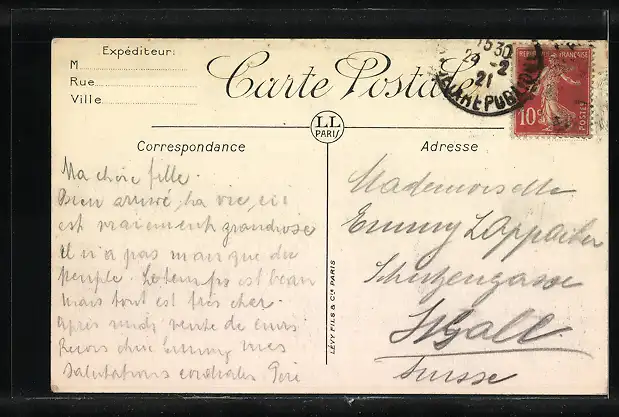 Expéditeur:
M
Rue
Ville
Carte Postale
15 30
29 -2
21
REPUBLIQUE FRANÇAISE
10c
POSTES
LL
PARIS
Correspondance
Adresse
LÉVY FILS & Cie PARIS
Ma chère fille.
Bien arrivé, la vie, ici
est vraiement grandiose
il n'a pas manque du
peuple. Le temps est beau
mais tout est très cher.
après midi vente de cuirs
Reçois chère Emmy mes
salutations cordiales Père
Mademoiselle
Emmy
Schützengasse
St Gall
Suisse